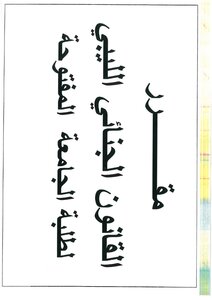 مقـــرر
القانون الجنائي الليبي
لطلبة الجامعة المفتوحة